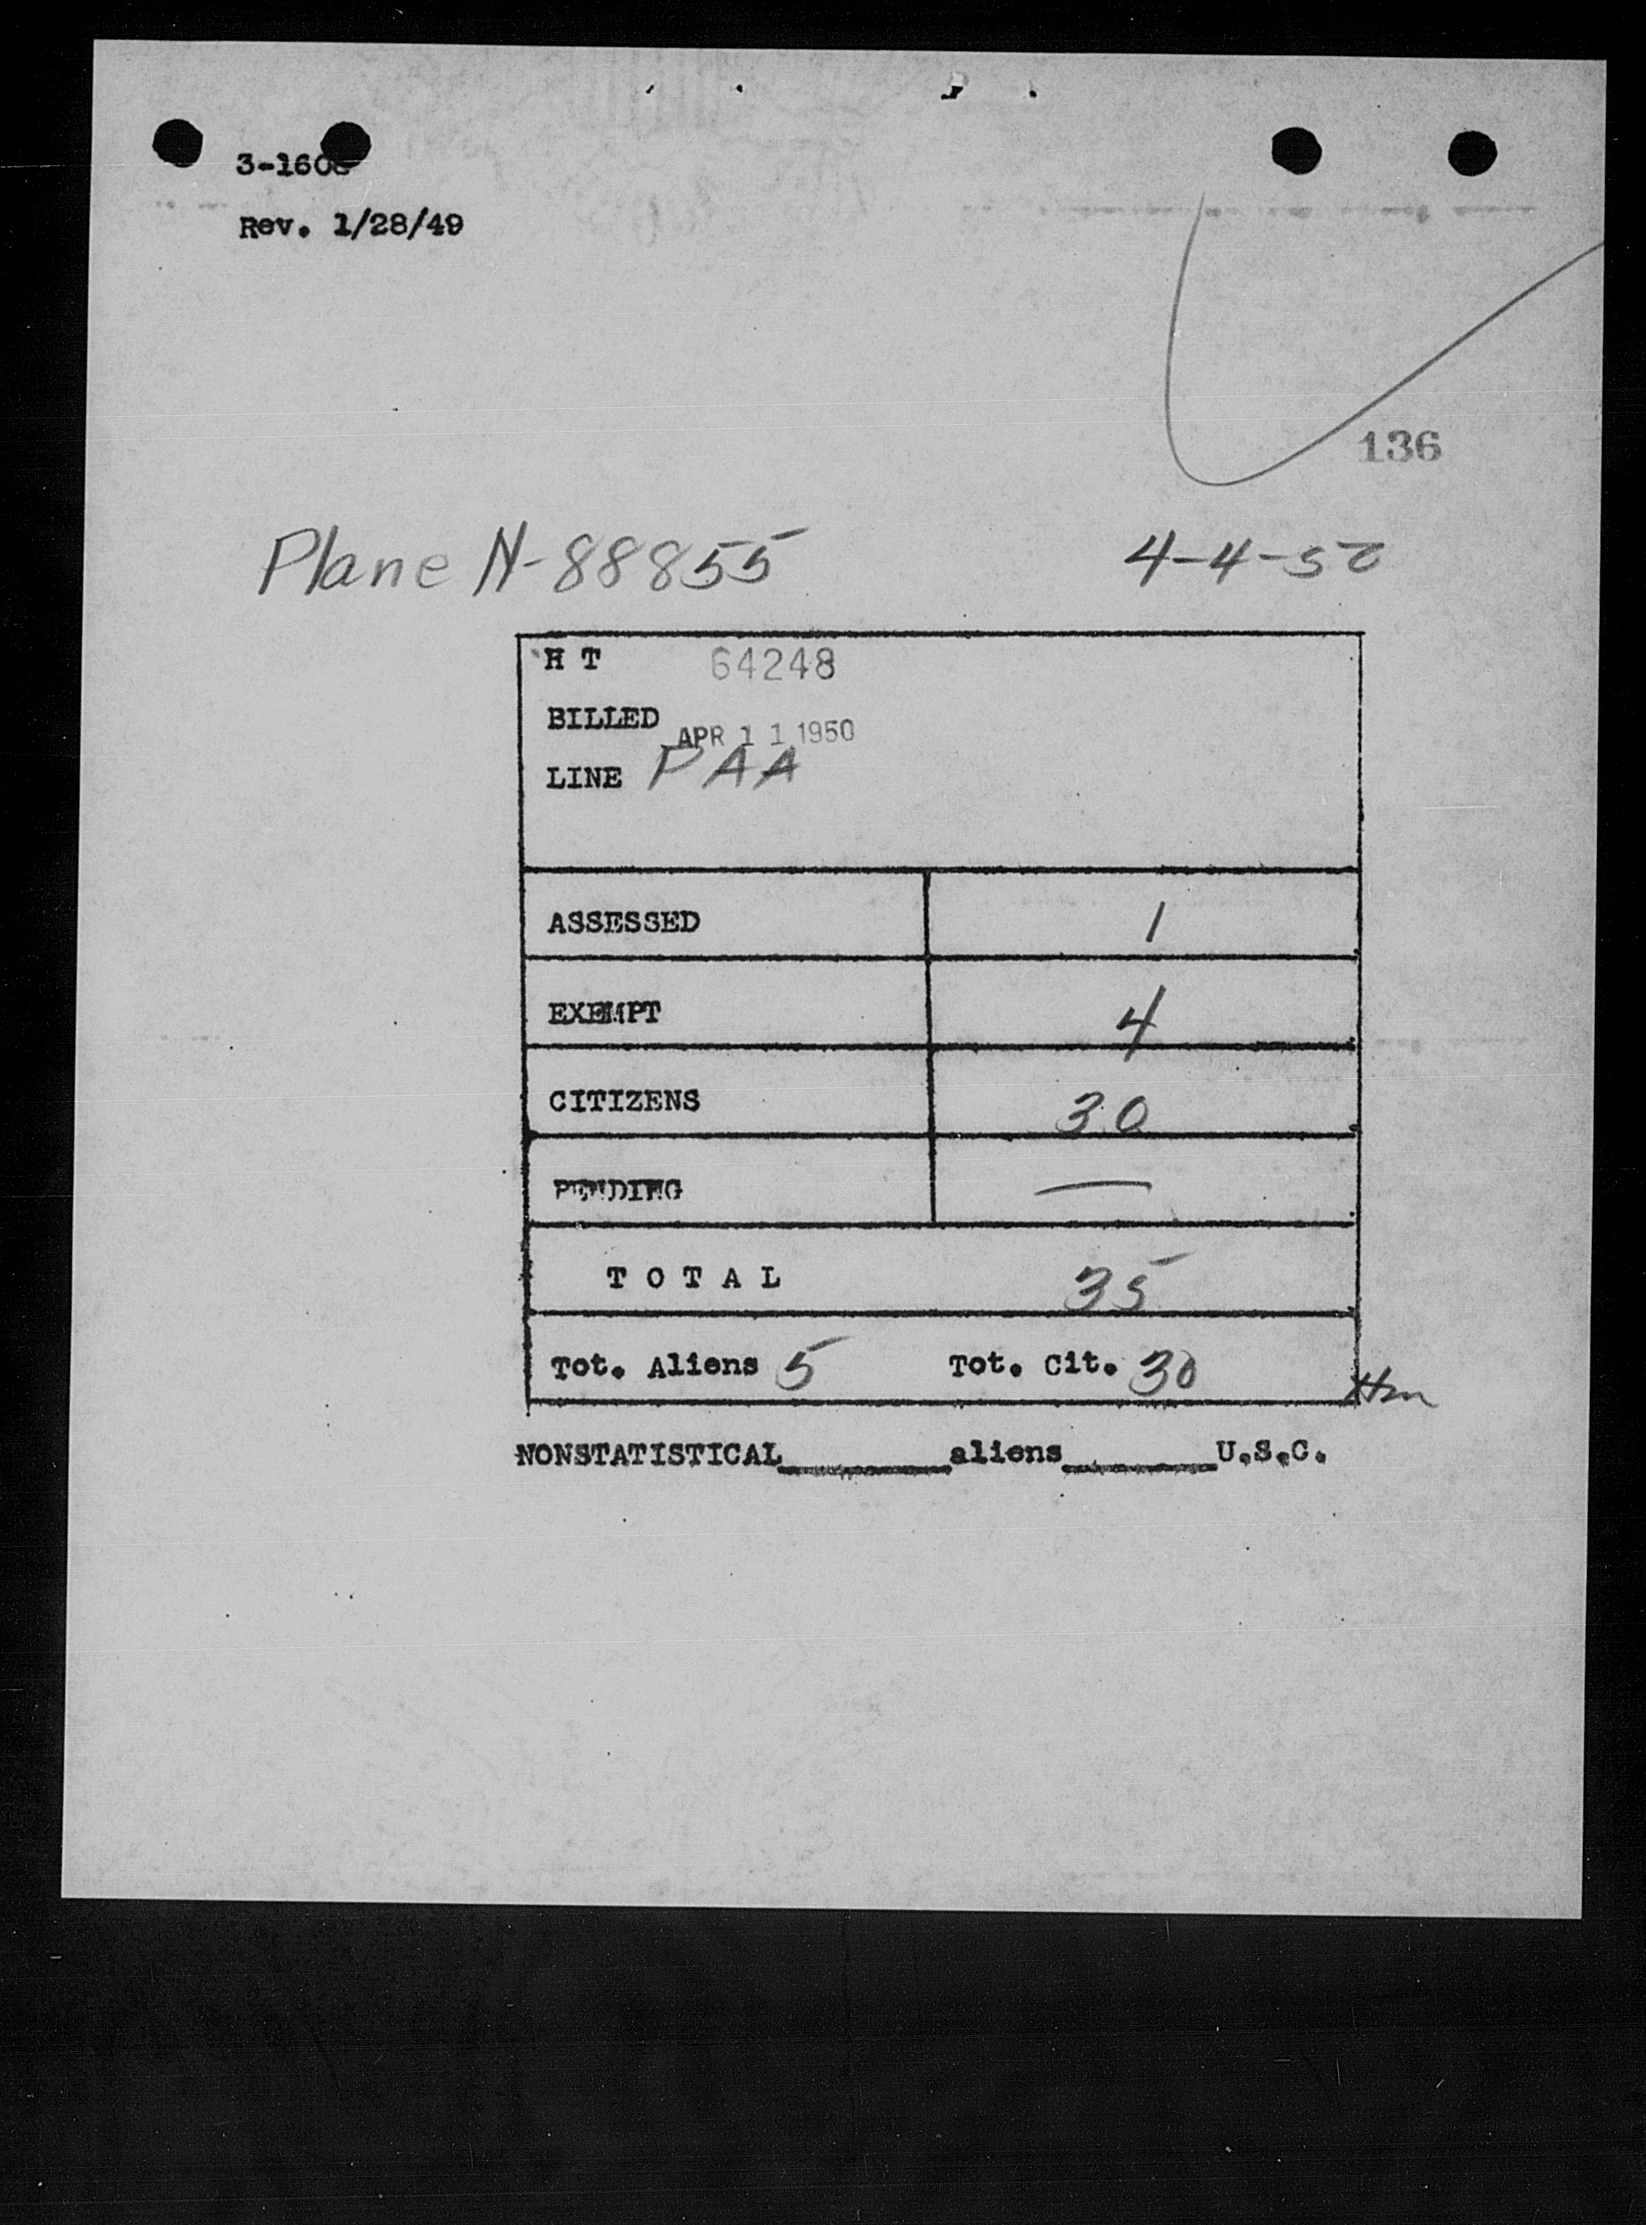 3-160
Rev. 1/28/49
136
Plane N-88855 4-4-50
H T 64248
BILLED APR 11 1950
LINE PAA
ASSESSED 1
EXEMPT 4
CITIZENS 30
PENDING —
TOTAL 35
Tot. Aliens 5 Tot. Cit. 30
NONSTATISTICAL________aliens________U.S.C.